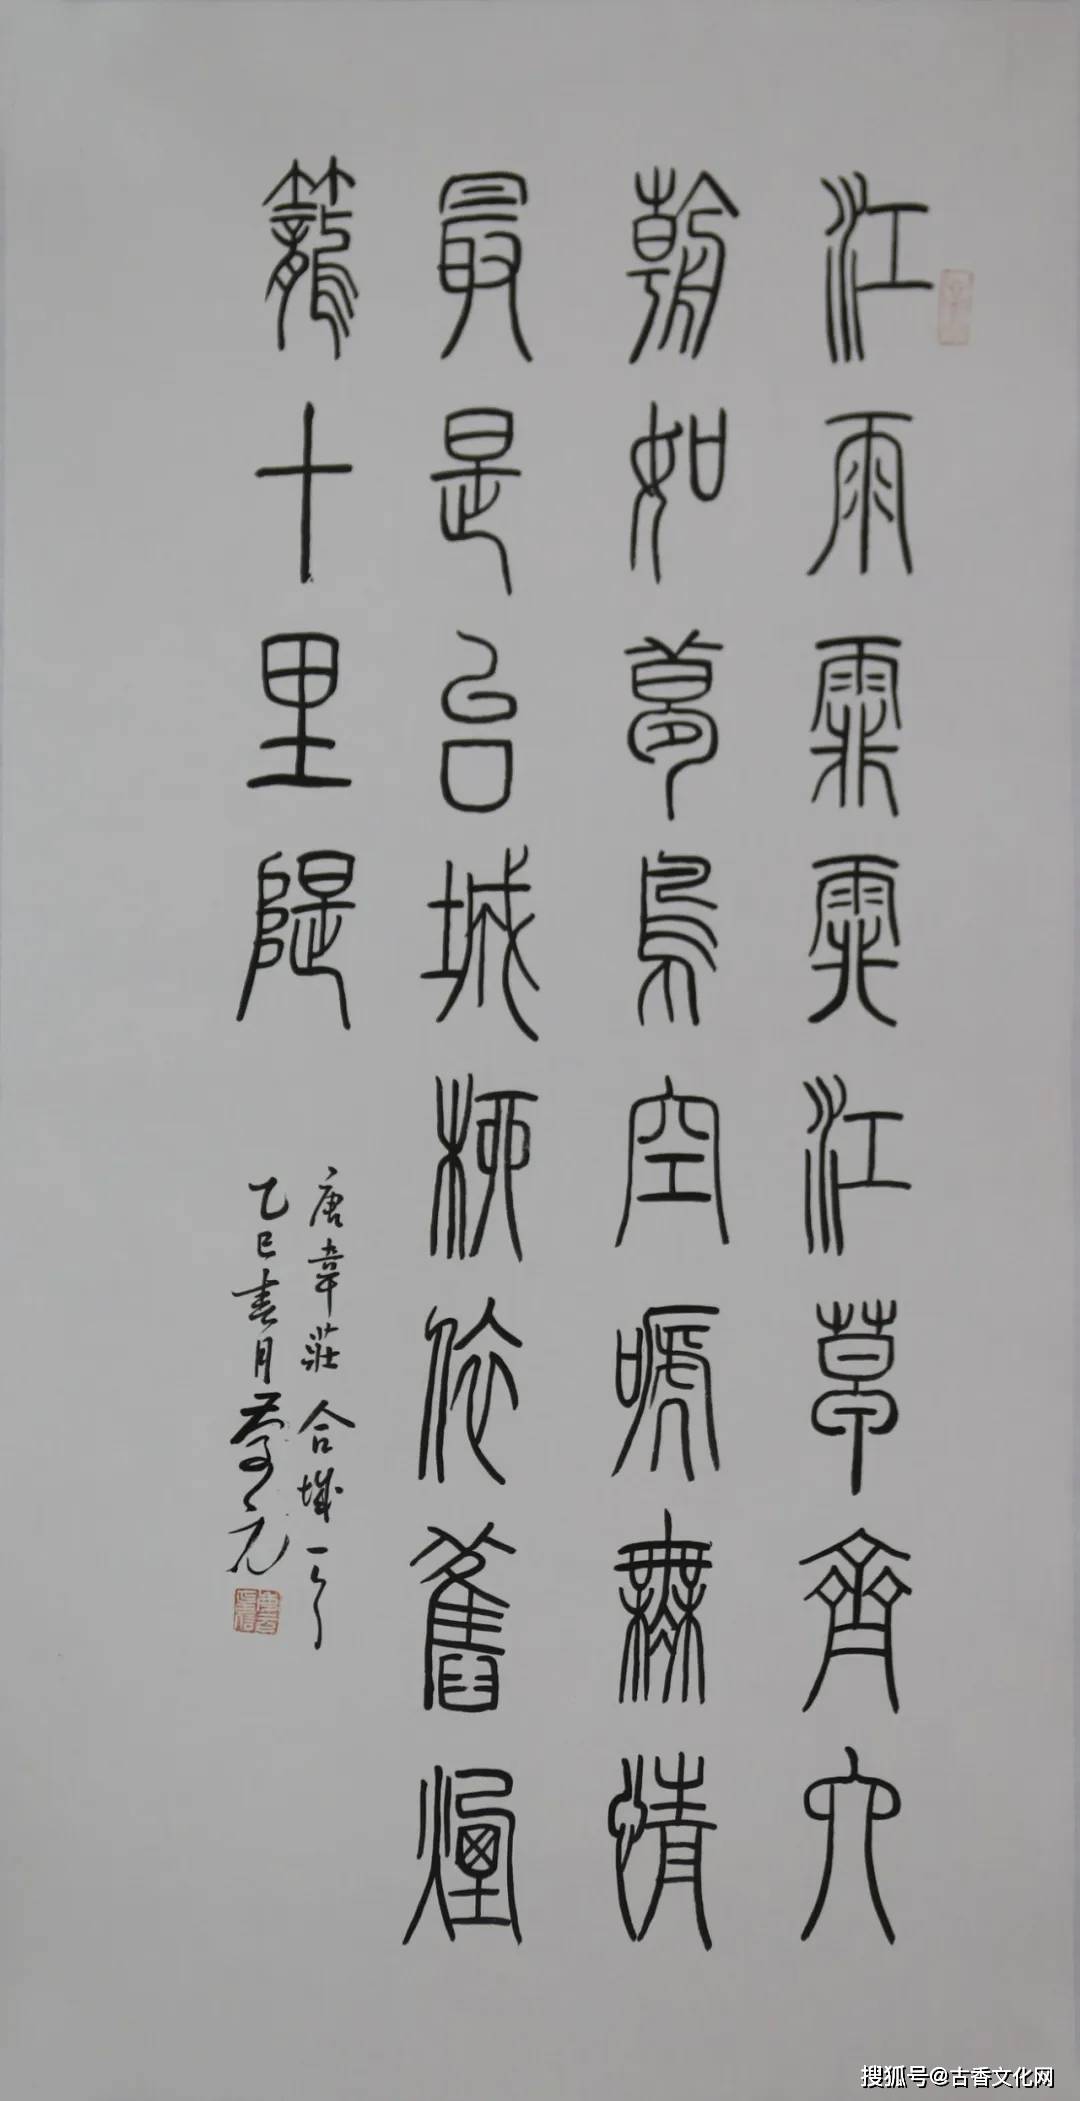 江雨霏霏江草齊六
朝如夢鳥空嗁無情
最是台城柳依舊煙
籠十里隄
唐韋莊台城一首
乙巳春月
搜狐号@古香文化网